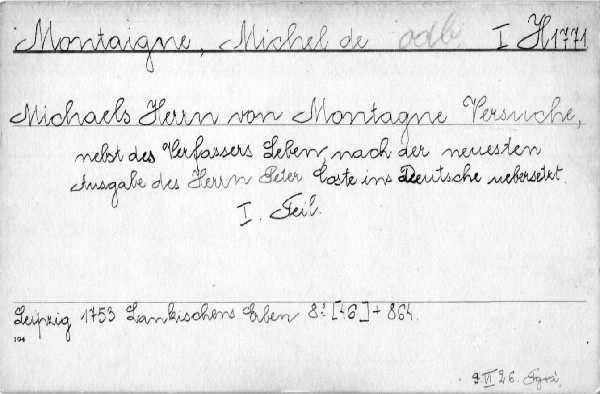 Montaigne, Michel de odb. I H 1771
Michaels Herrn von Montagne Versuche,
nebst des Verfassers Leben, nach der neuesten
Ausgabe des Herrn Peter Coste ins Deutsche uebersetzt.
I. Teil.
Leipzig 1753 Lankischens Erben 8º [46] + 864.
194
9. VI 26.